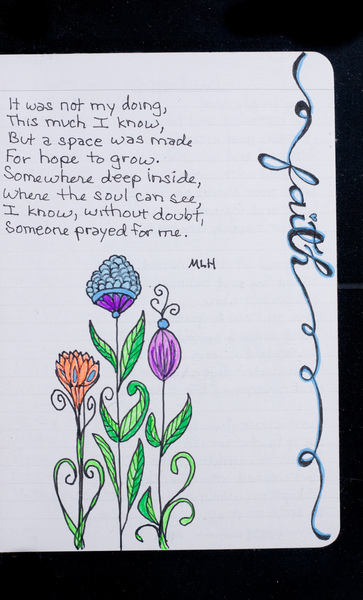 It was not my doing,
This much I know,
But a space was made
For hope to grow.
Somewhere deep inside,
Where the soul can see,
I know, without doubt,
Someone prayed for me.
MLH
faith